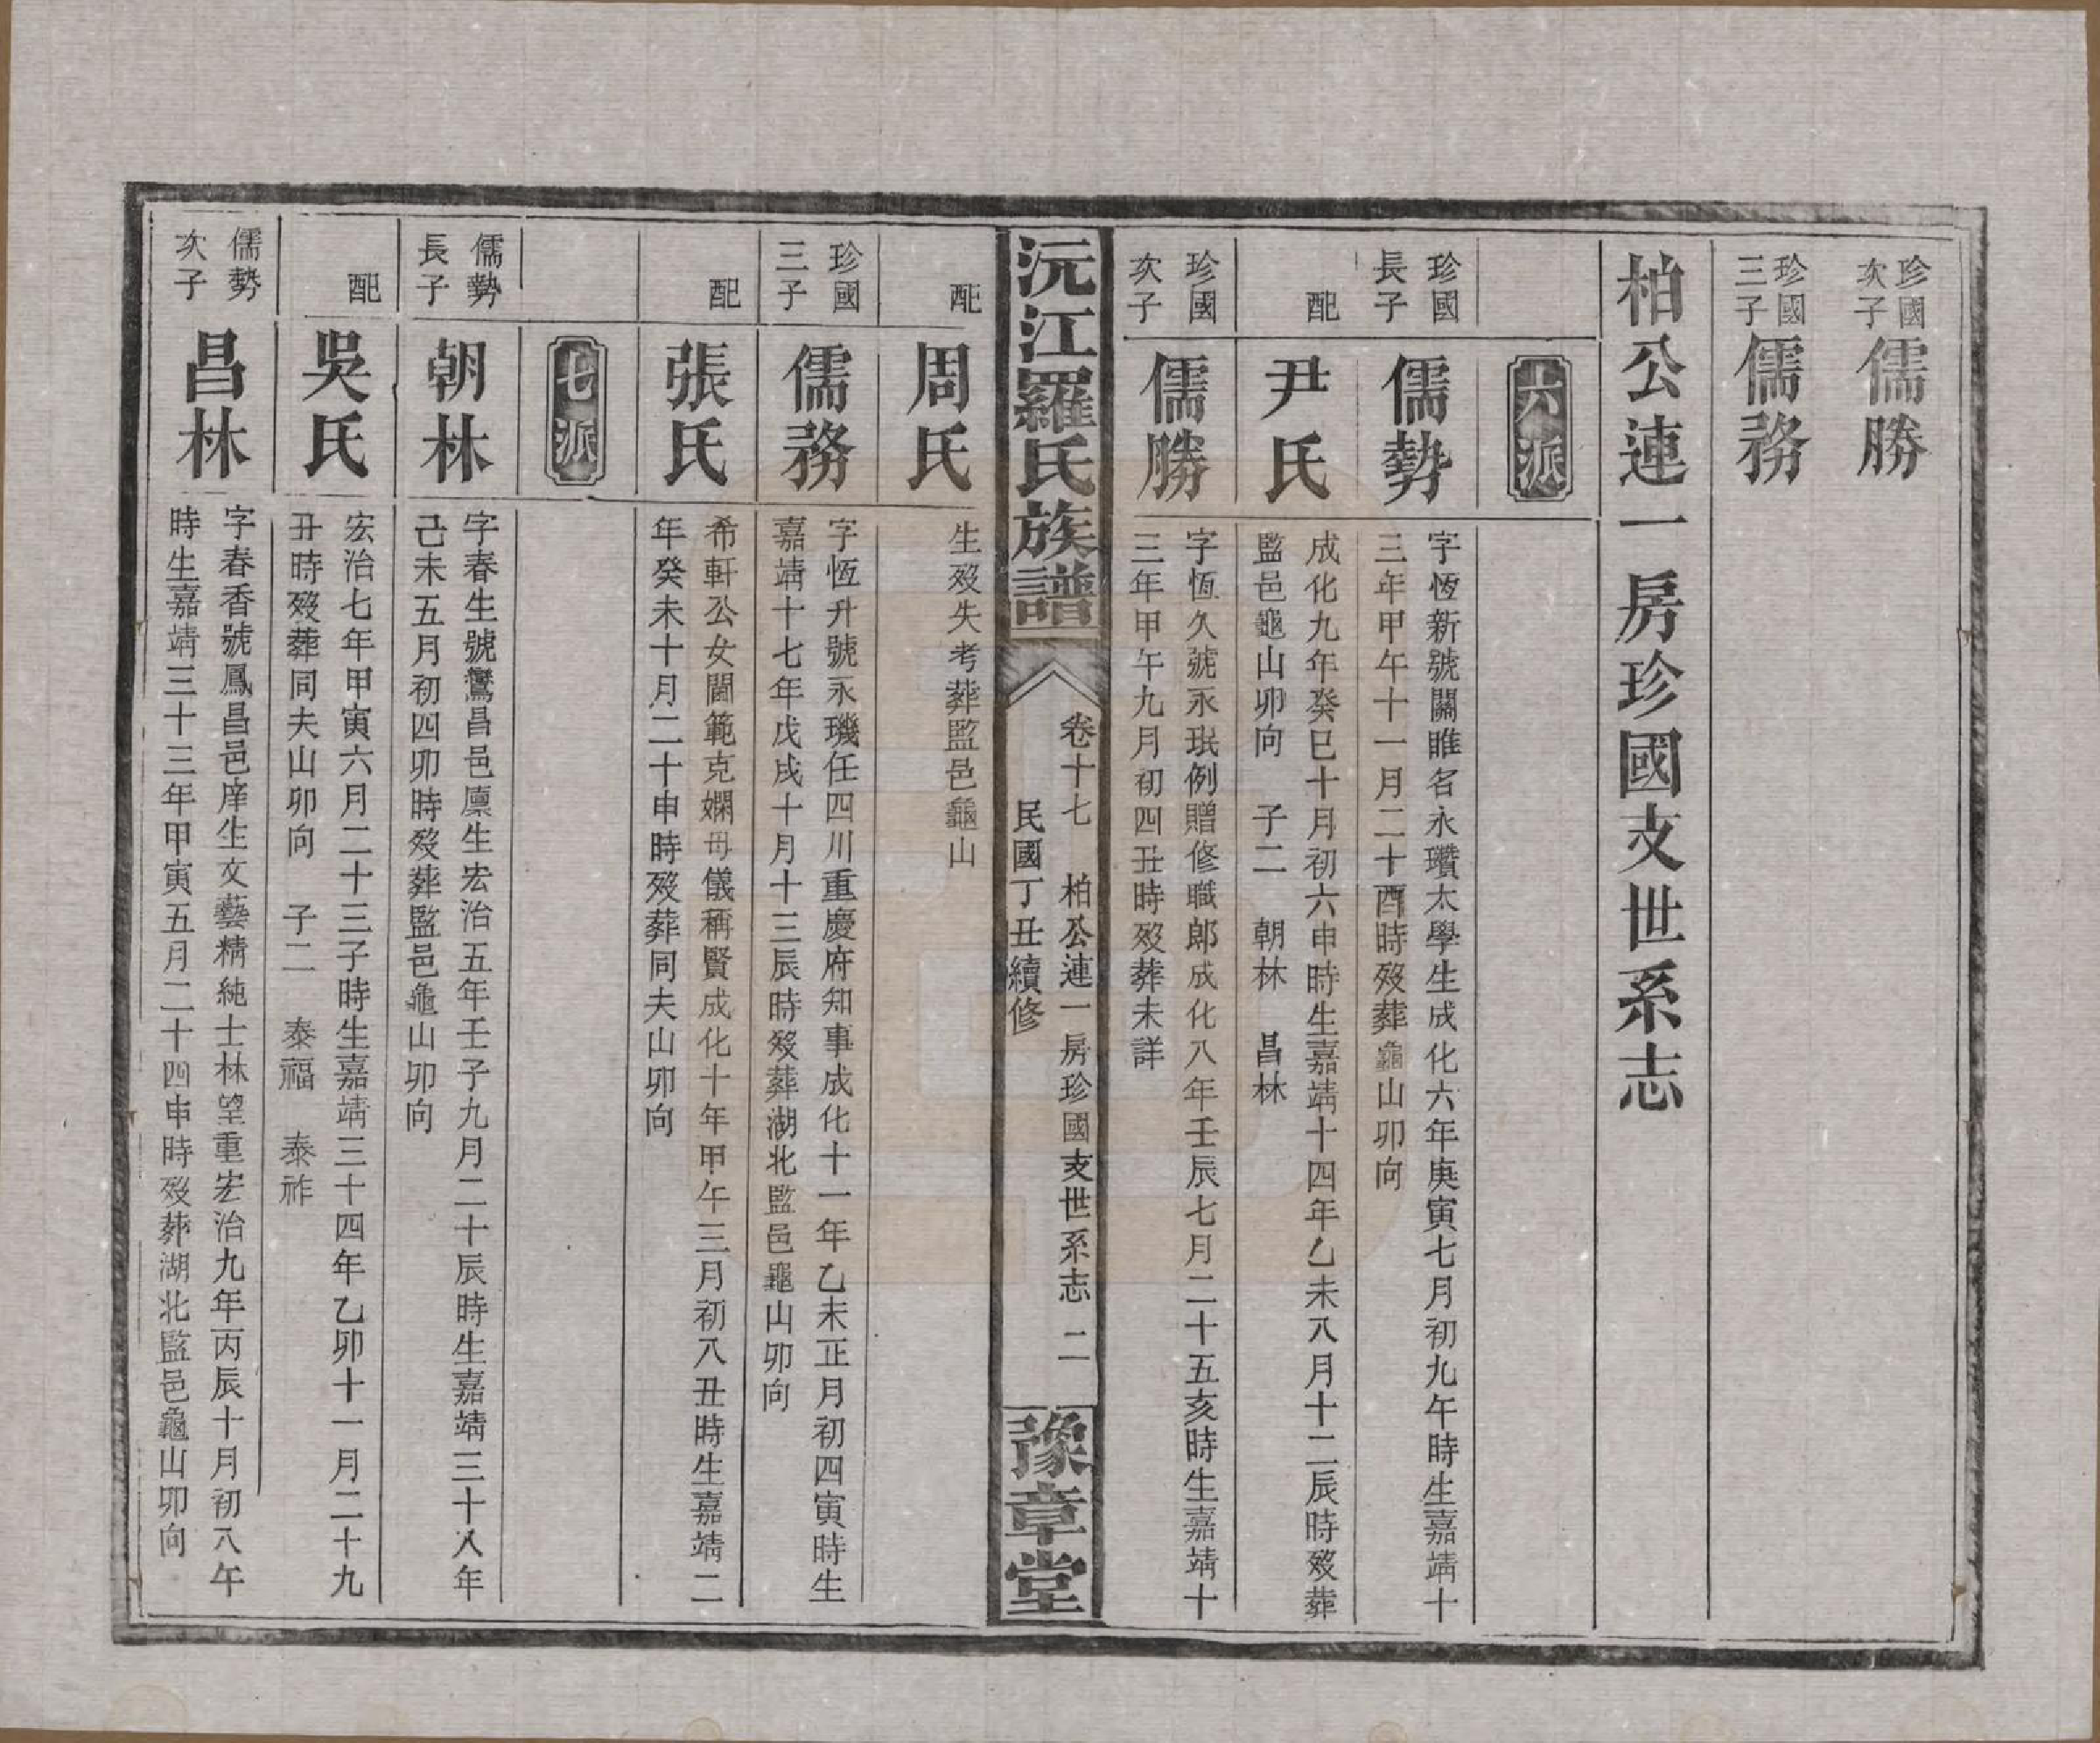 珍國次子儒勝
珍國三子儒務
柏公連一房珍國支世系志
六派
珍國長子
儒勢
字恆新號關睢名永瓚太學生成化六年庚寅七月初九午時生嘉靖十
三年甲午十一月二十酉時歿葬龜山卯向
配
尹氏
成化九年癸巳十月初六申時生嘉靖十四年乙未八月十二辰時歿葬
監邑龜山卯向 子二 朝林 昌林
珍國次子
儒勝
字恆久號永珉例贈修職郎成化八年壬辰七月二十五亥時生嘉靖十
三年甲午九月初四丑時歿葬未詳
沅江羅氏族譜
卷十七 柏公連一房珍國支世系志 二
民國丁丑續修
豫章堂
配
周氏
生歿失考葬監邑龜山
珍國三子
儒務
字恆升號永璣任四川重慶府知事成化十一年乙未正月初四寅時生
嘉靖十七年戊戌十月十三辰時歿葬湖北監邑龜山卯向
配
張氏
希軒公女閫範克嫻毋儀稱賢成化十年甲午三月初八丑時生嘉靖二
年癸未十月二十申時歿葬同夫山卯向
七派
儒勢長子
朝林
字春生號鸞昌邑廩生宏治五年壬子九月二十辰時生嘉靖三十八年
己未五月初四卯時歿葬監邑龜山卯向
配
吳氏
宏治七年甲寅六月二十三子時生嘉靖三十四年乙卯十一月二十九
丑時歿葬同夫山卯向 子二 泰福 泰祚
儒勢次子
昌林
字春香號鳳昌邑庠生文藝精純士林望重宏治九年丙辰十月初八午
時生嘉靖三十三年甲寅五月二十四申時歿葬湖北監邑龜山卯向